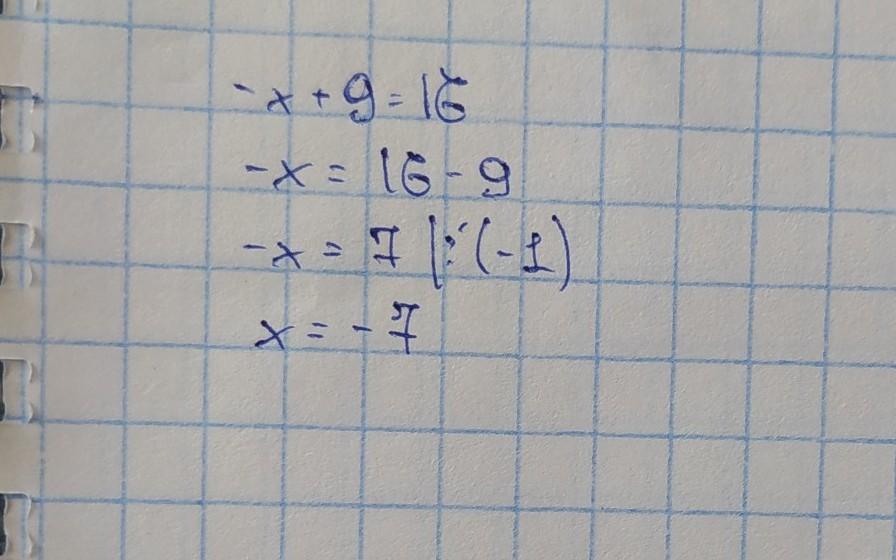 -x + 9 = 16
-x = 16 - 9
-x = 7 |:(-1)
x = -7